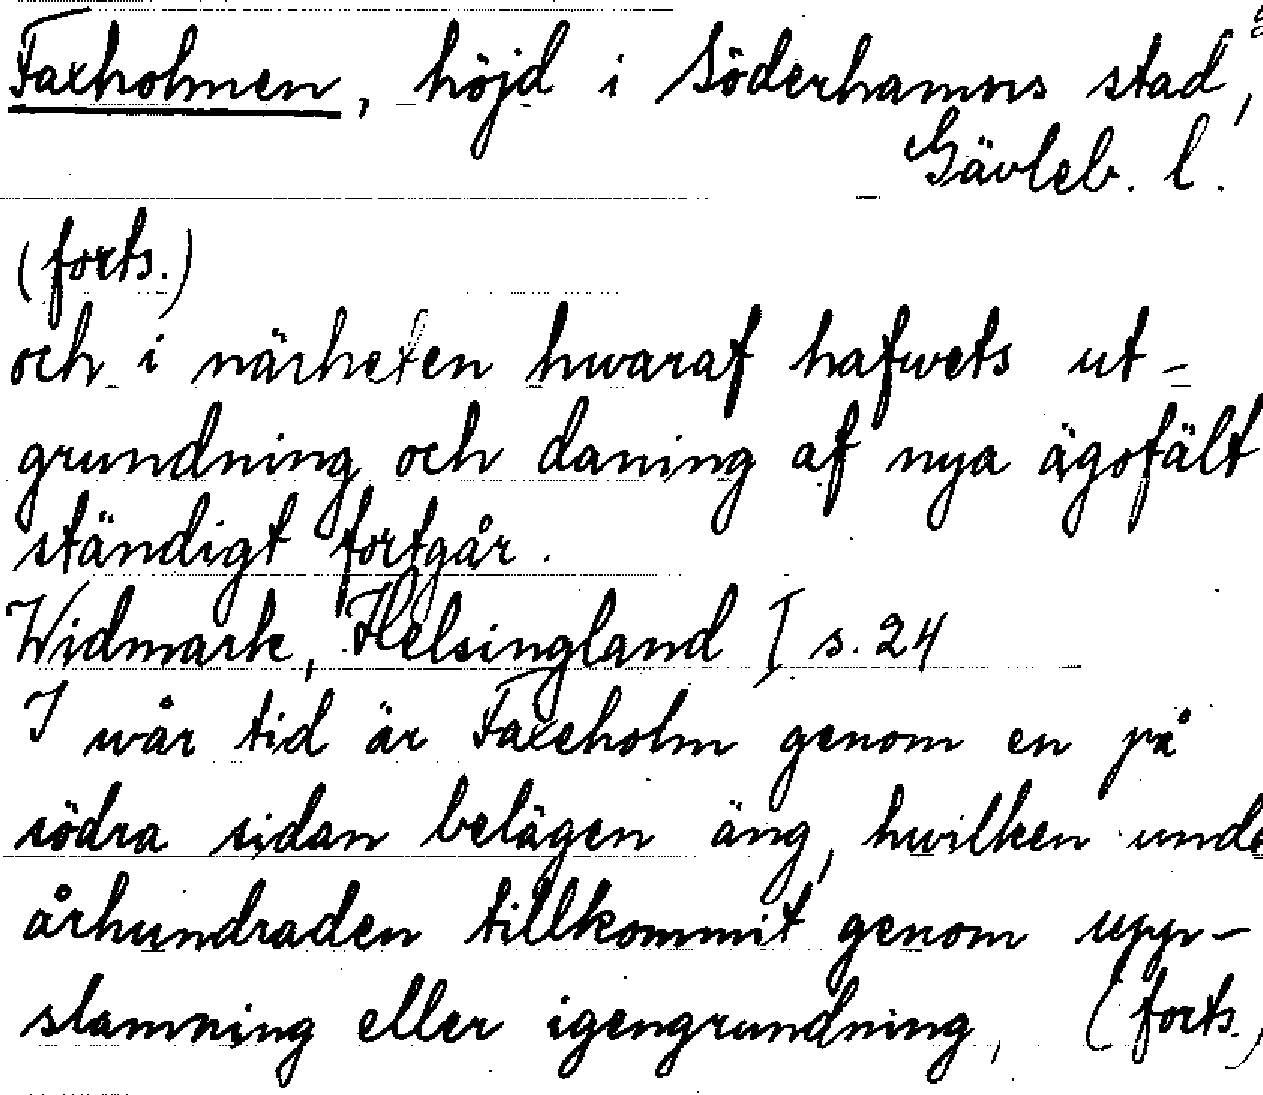 Faxholmen, höjd i Söderhamns stad,
Gävleb. l.
(forts.)
och i närheten hwaraf hafwets ut-
grundning och daning af nya ägofält
ständigt fortgår.
Widmark, Helsingland I s. 24
I wår tid är Faxeholm genom en på
södra sidan belägen äng, hwilken unde
århundraden tillkommit genom upp-
slamning eller igengrundning, (forts.)